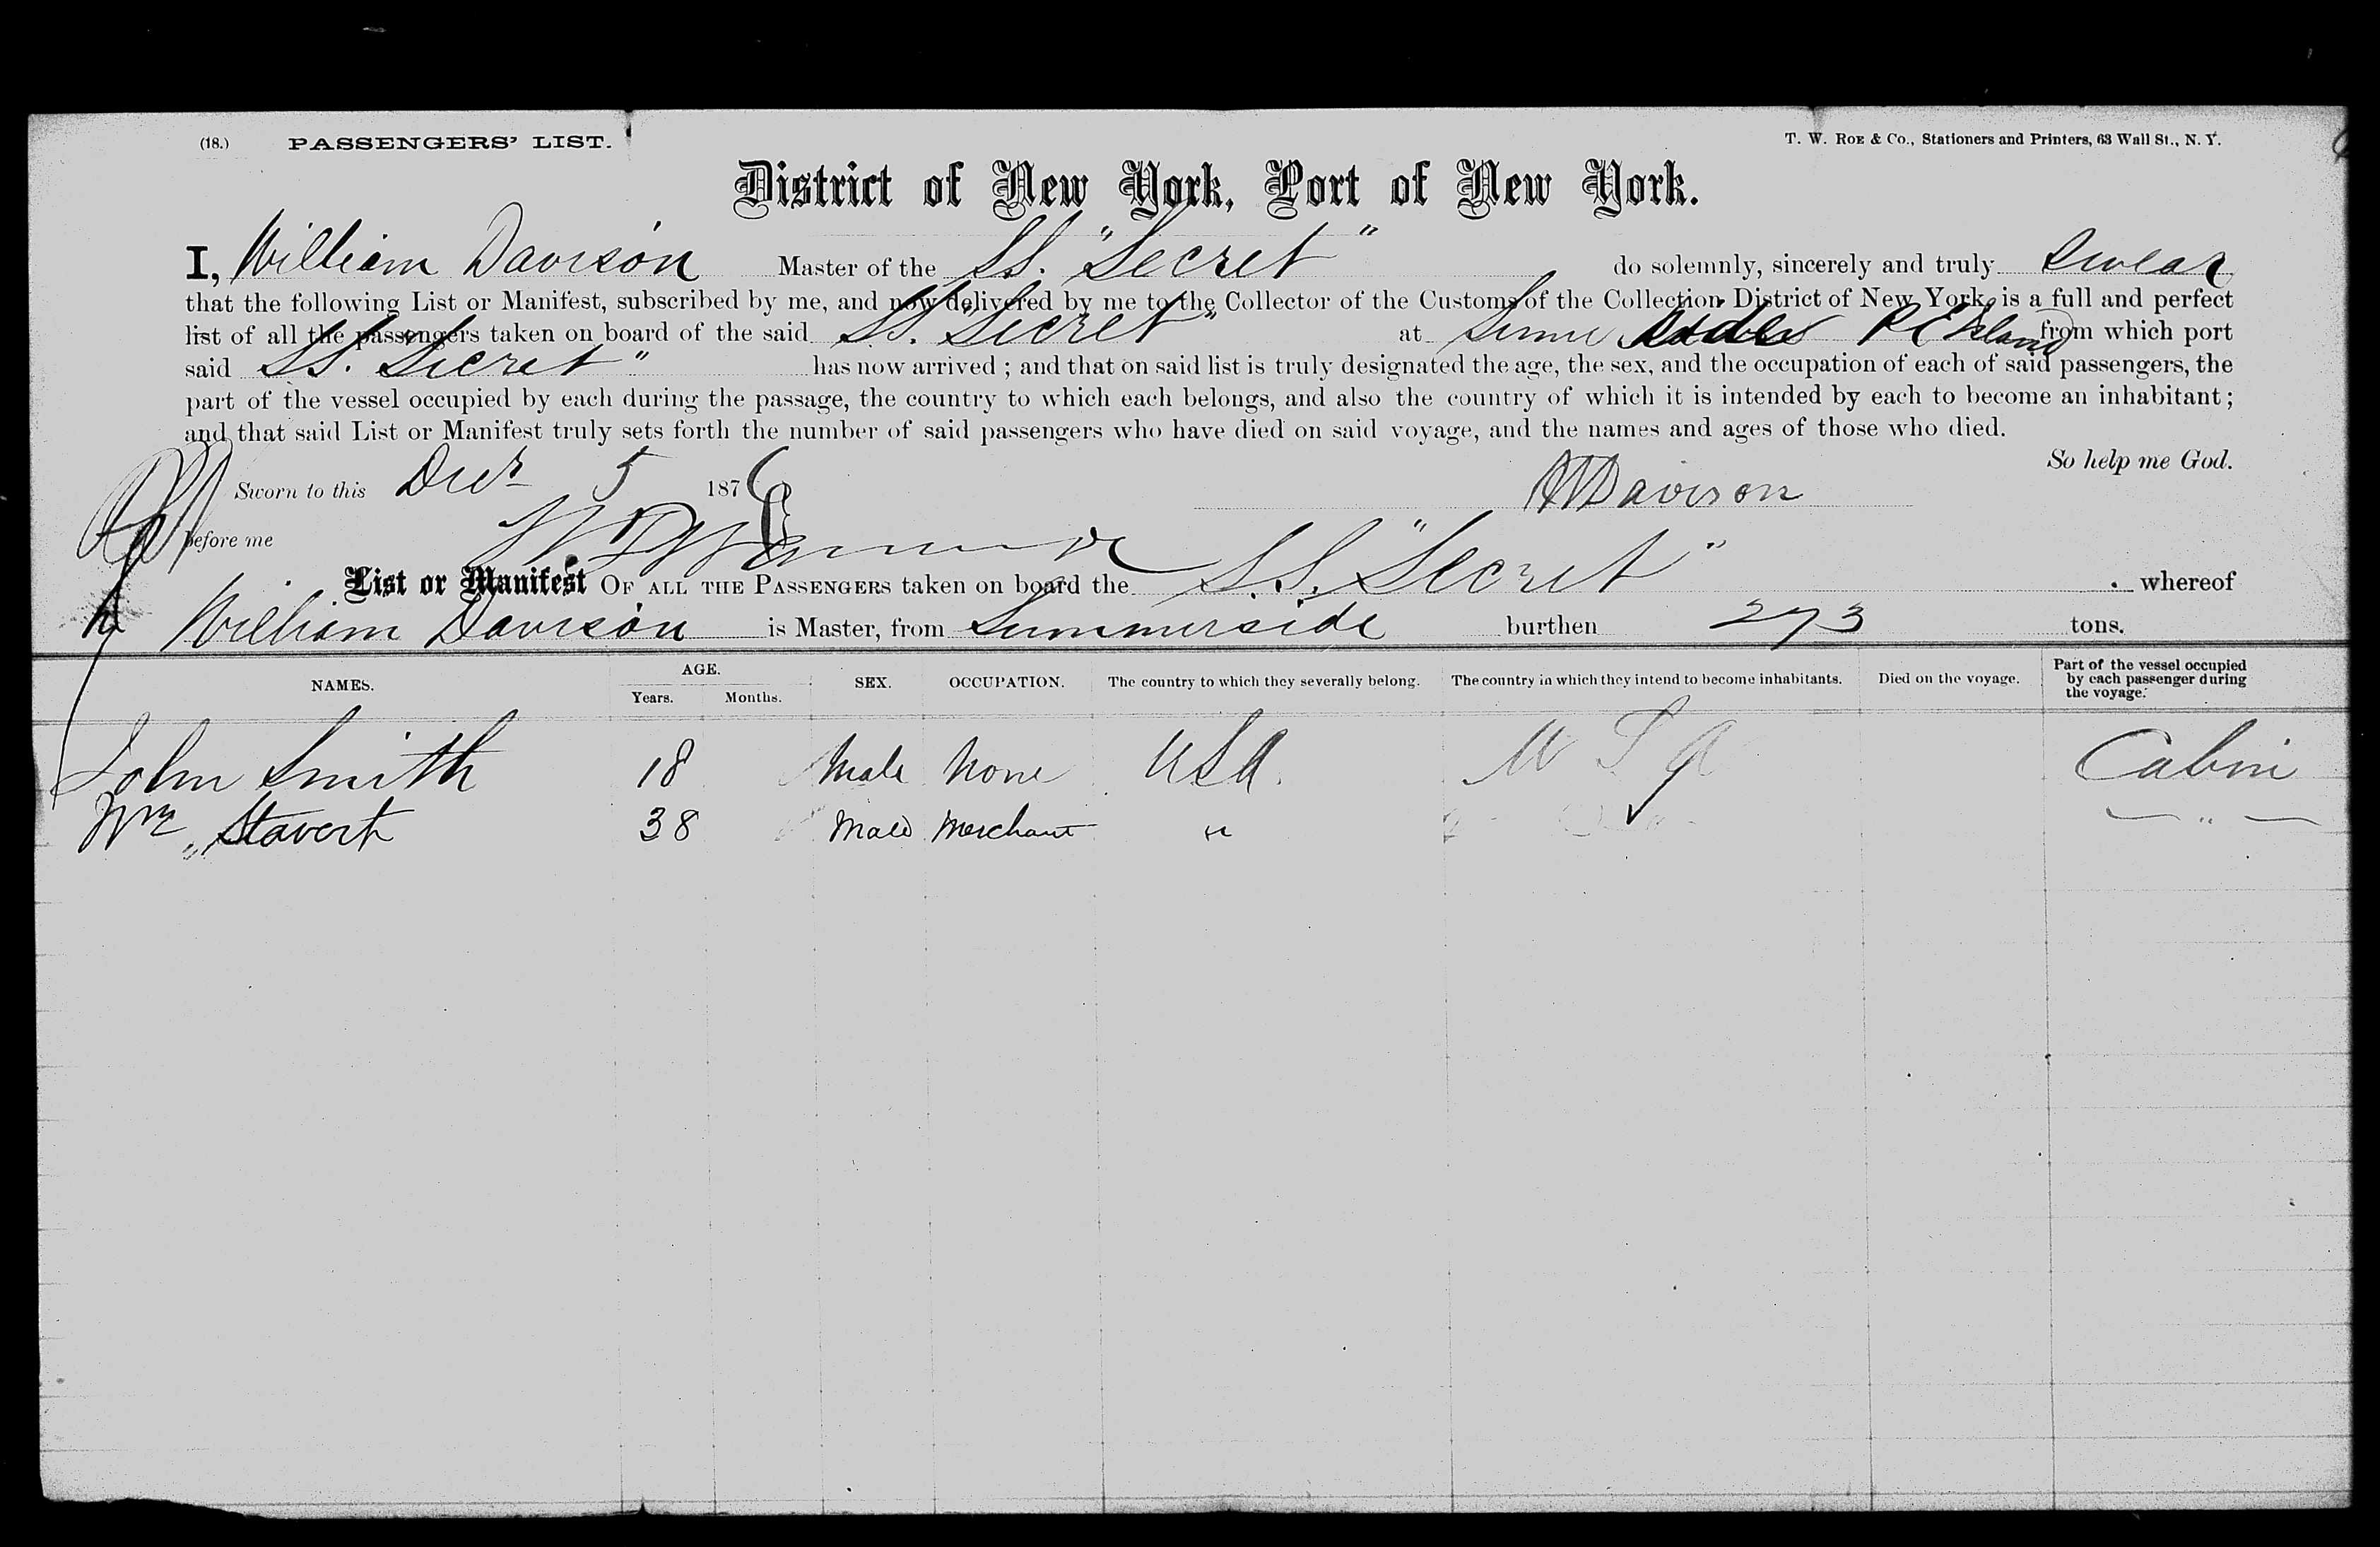 (18.) PASSENGERS' LIST. T. W. ROE & Co., Stationers and Printers, 63 Wall St., N. Y.
District of New York, Port of New York.
I, William Davison Master of the SS. "Secret" do solemnly, sincerely and truly swear
that the following List or Manifest, subscribed by me, and now delivered by me to the Collector of the Customs of the Collection District of New York, is a full and perfect
list of all the passengers taken on board of the said SS. "Secret" at Summerside P E Island from which port
said SS. "Secret" has now arrived ; and that on said list is truly designated the age, the sex, and the occupation of each of said passengers, the
part of the vessel occupied by each during the passage, the country to which each belongs, and also the country of which it is intended by each to become an inhabitant ;
and that said List or Manifest truly sets forth the number of said passengers who have died on said voyage, and the names and ages of those who died.
So help me God.
Sworn to this Decr 5 1876 W Davison
Before me
List or Manifest OF ALL THE PASSENGERS taken on board the S.S. "Secret" whereof
William Davison is Master, from Summerside burthen 273 tons.
NAMES. AGE. Years. Months. SEX. OCCUPATION. The country to which they severally belong. The country in which they intend to become inhabitants. Died on the voyage. Part of the vessel occupied by each passenger during the voyage.
John Smith 18 Male None USA. U S A Cabin
Wm Stavert 38 Male Merchant " "